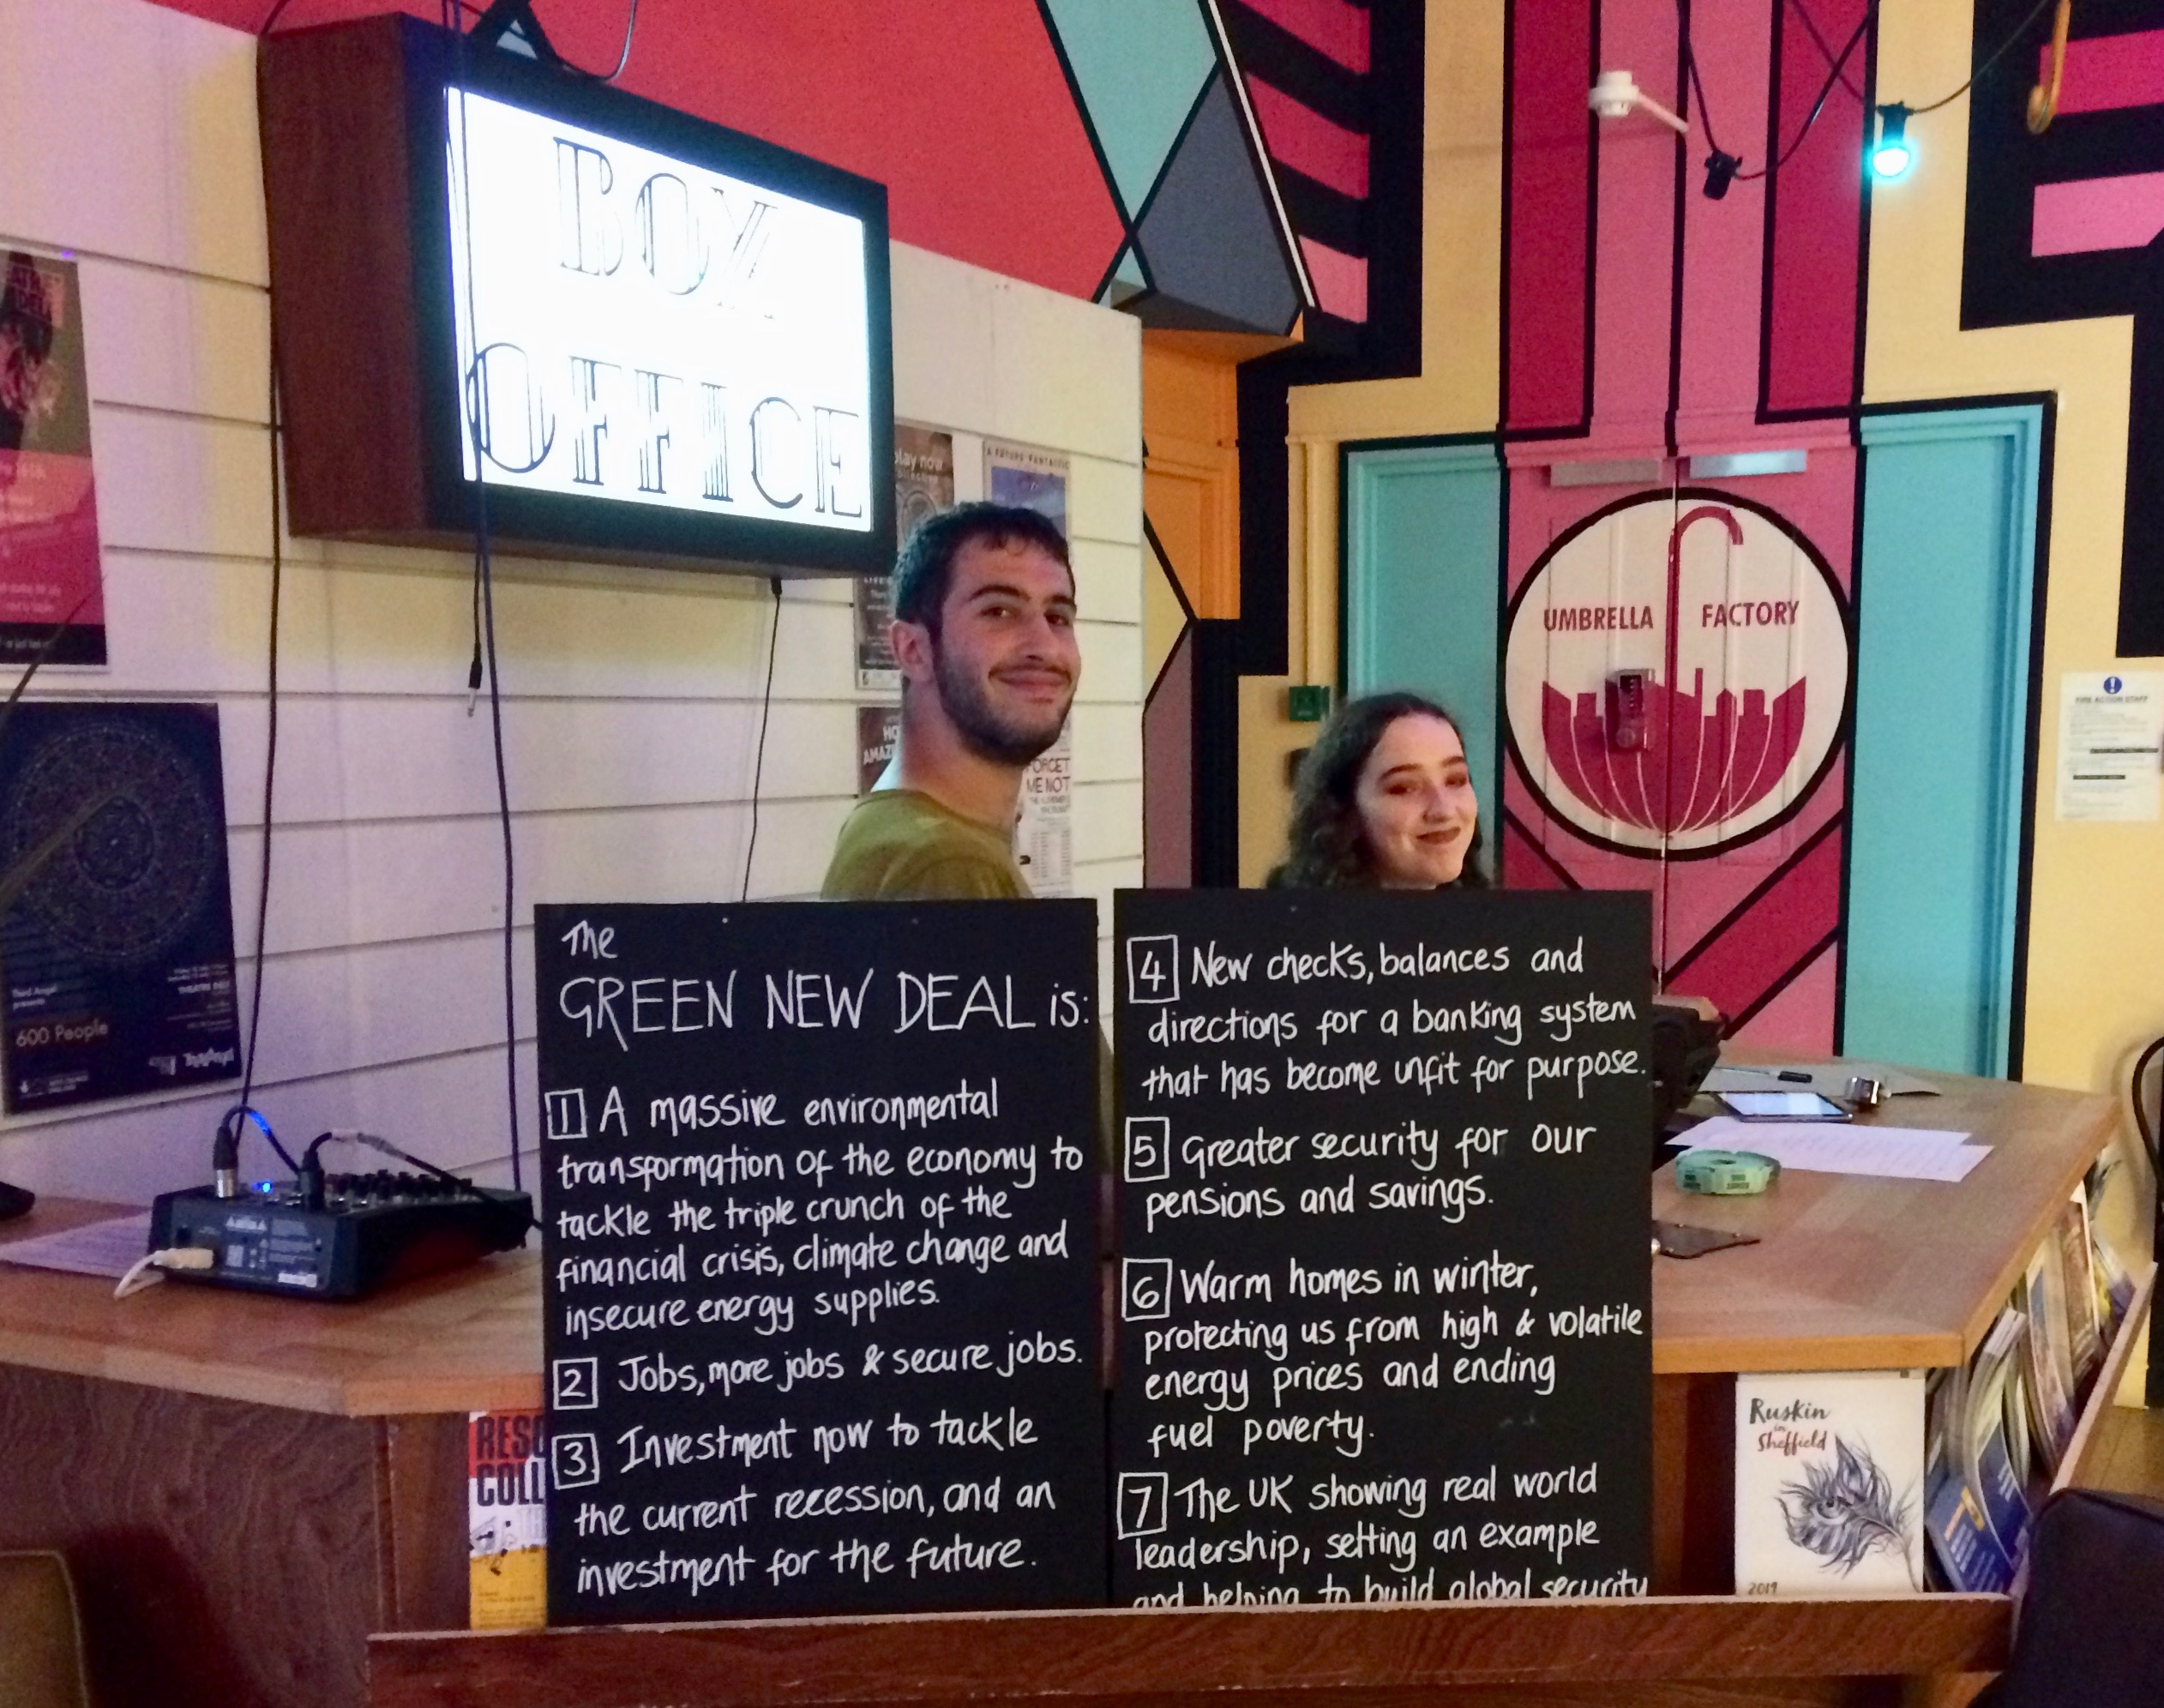 BOX
OFFICE
UMBRELLA FACTORY
play now
A FUTURE FANTASTIC
FORGET
ME NOT
FIRE ACTION STAFF
Third Angel
presents
600 People
The
GREEN NEW DEAL is:
1 A massive environmental
transformation of the economy to
tackle the triple crunch of the
financial crisis, climate change and
insecure energy supplies.
2 Jobs, more jobs & secure jobs.
3. Investment now to tackle
the current recession, and an
investment for the future.
4 New checks, balances and
directions for a banking system
that has become unfit for purpose.
5 Greater security for our
pensions and savings.
6 Warm homes in winter,
protecting us from high & volatile
energy prices and ending
fuel poverty.
7 The UK showing real world
leadership, setting an example
and helping to build global security
RESO
COLL
Ruskin
in
Sheffield
2019